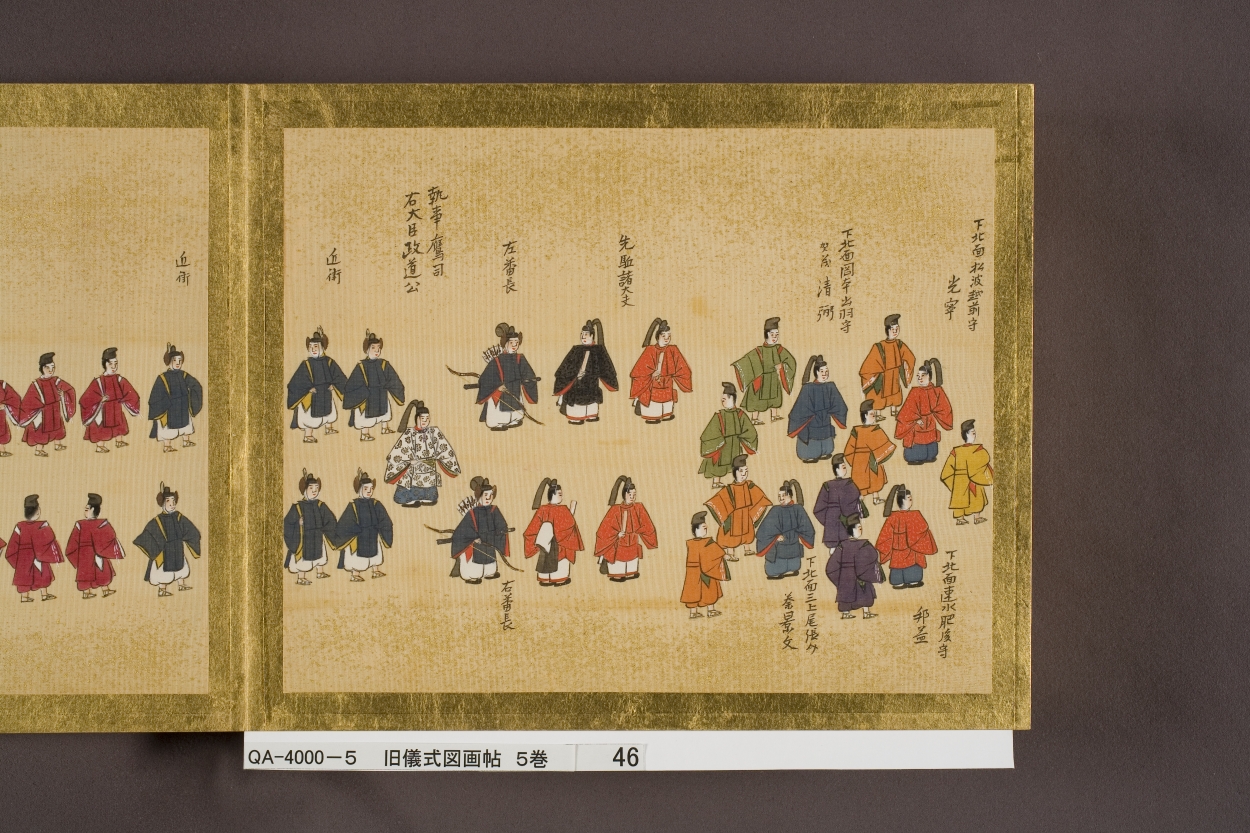 下北面松波越前守
光寧
下北面岡本出羽守
清弼
先駈諸大夫
左番長
執事鷹司
右大臣政通公
近衛
近衛
右番長
下北面三上尾張介
秦景文
下北面速水肥後守
QA-4000-5 旧儀式図画帖 5巻 46